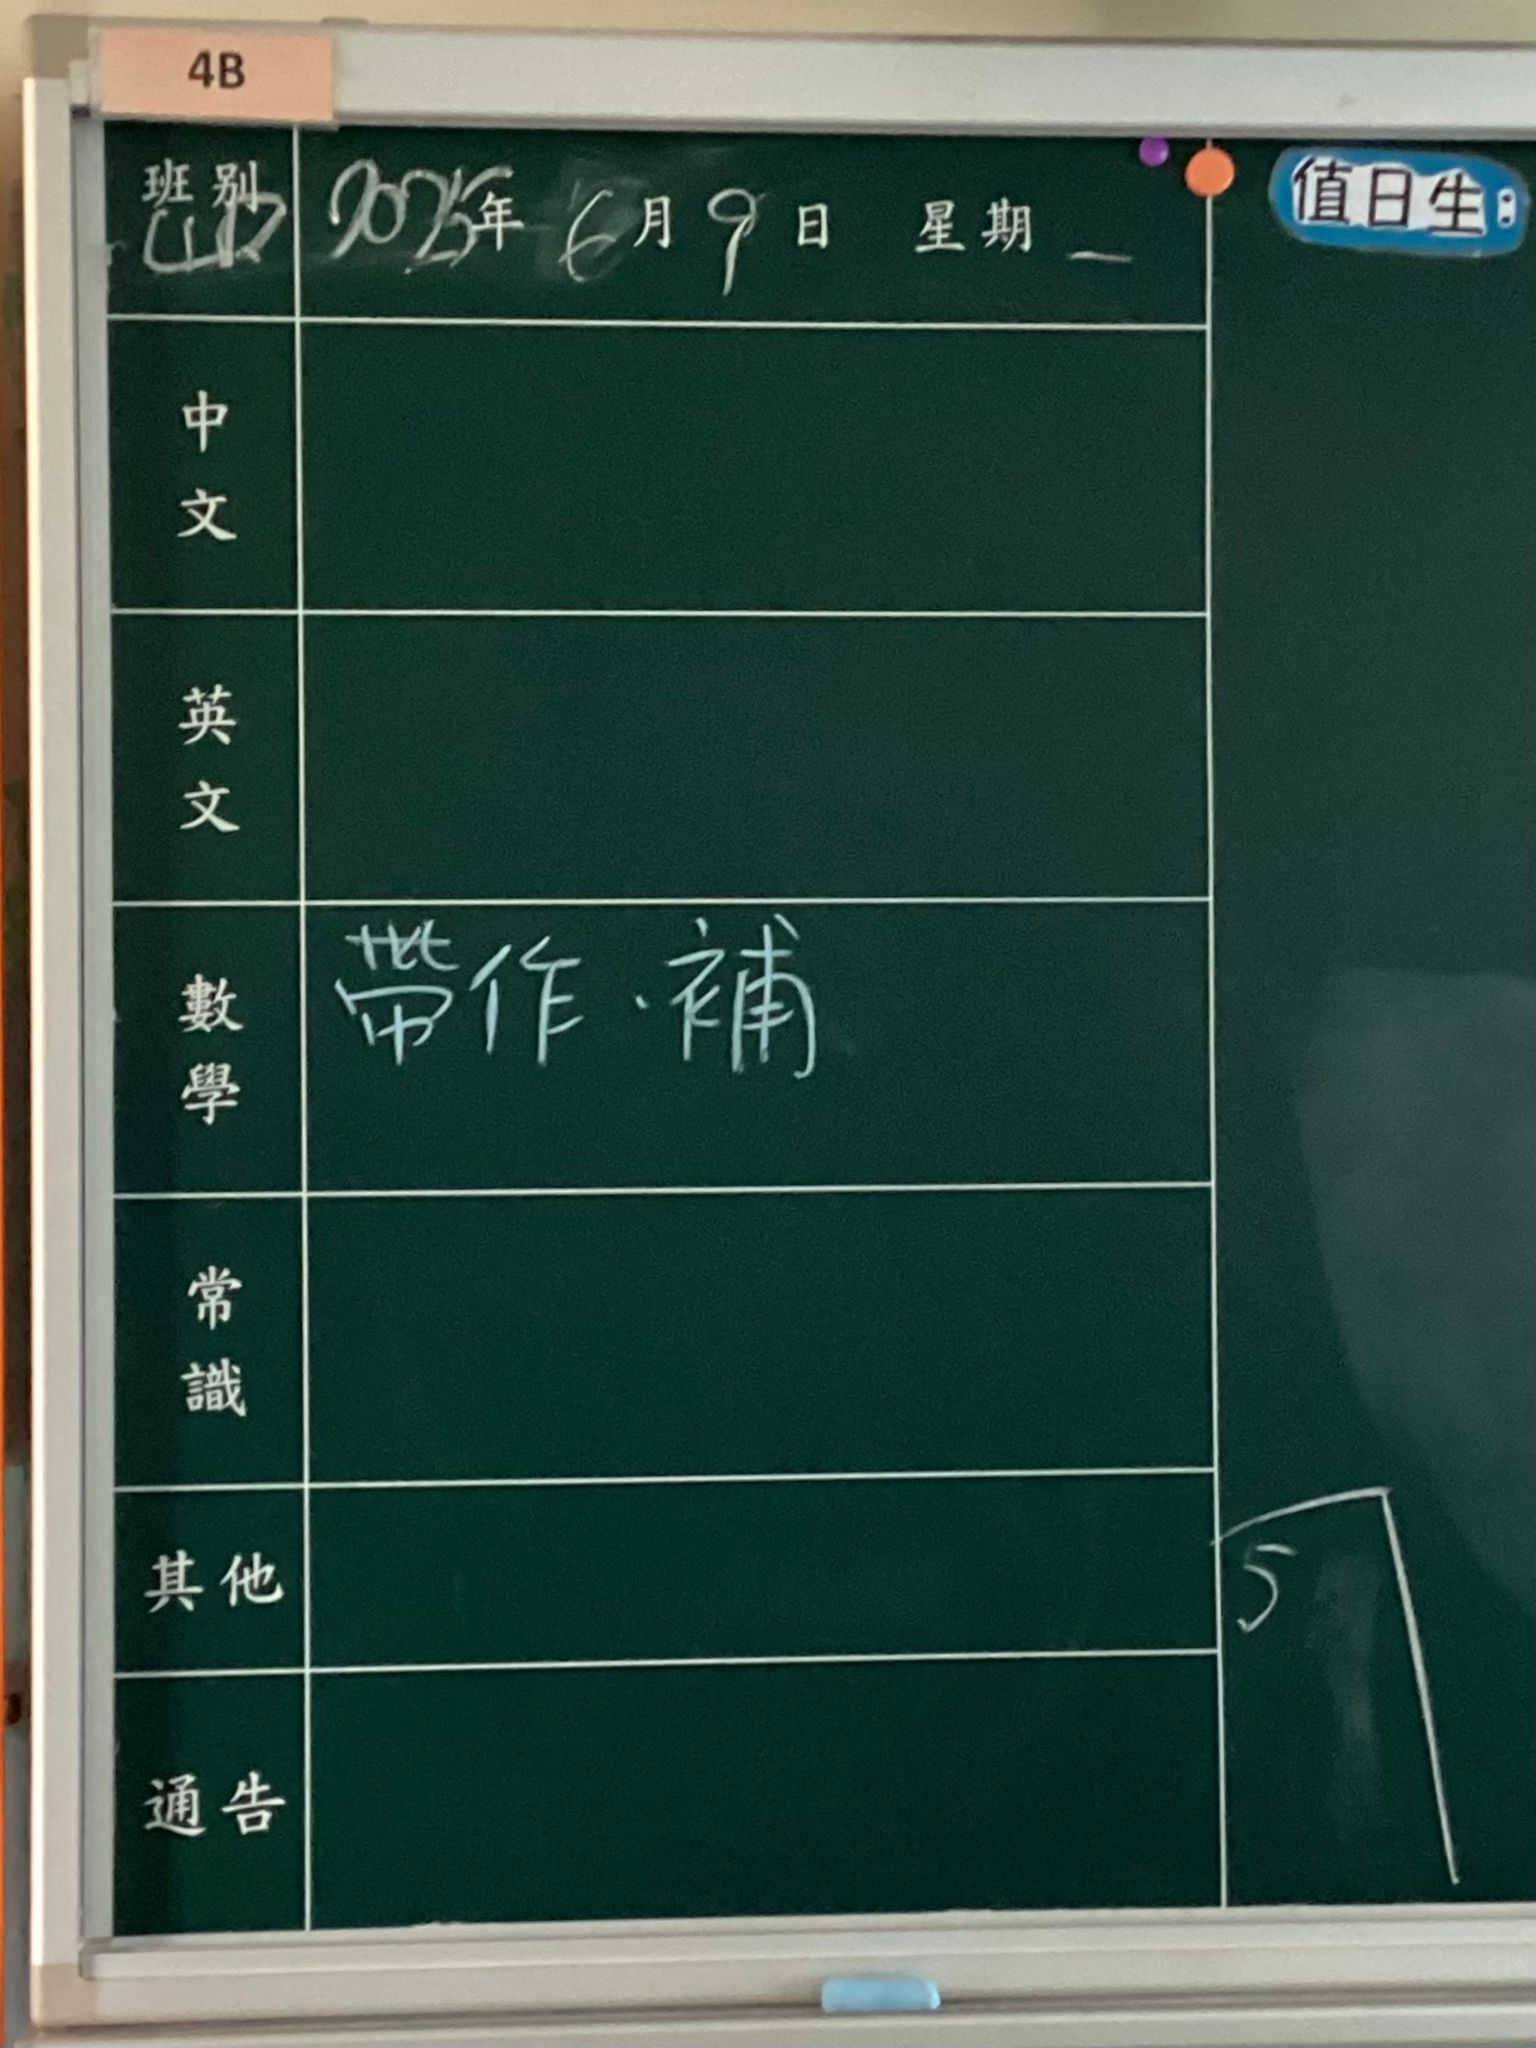 4B
班別 2025年 6月9日 星期一
值日生:
中文
英文
數學 帶作.補
常識
其他
5
通告